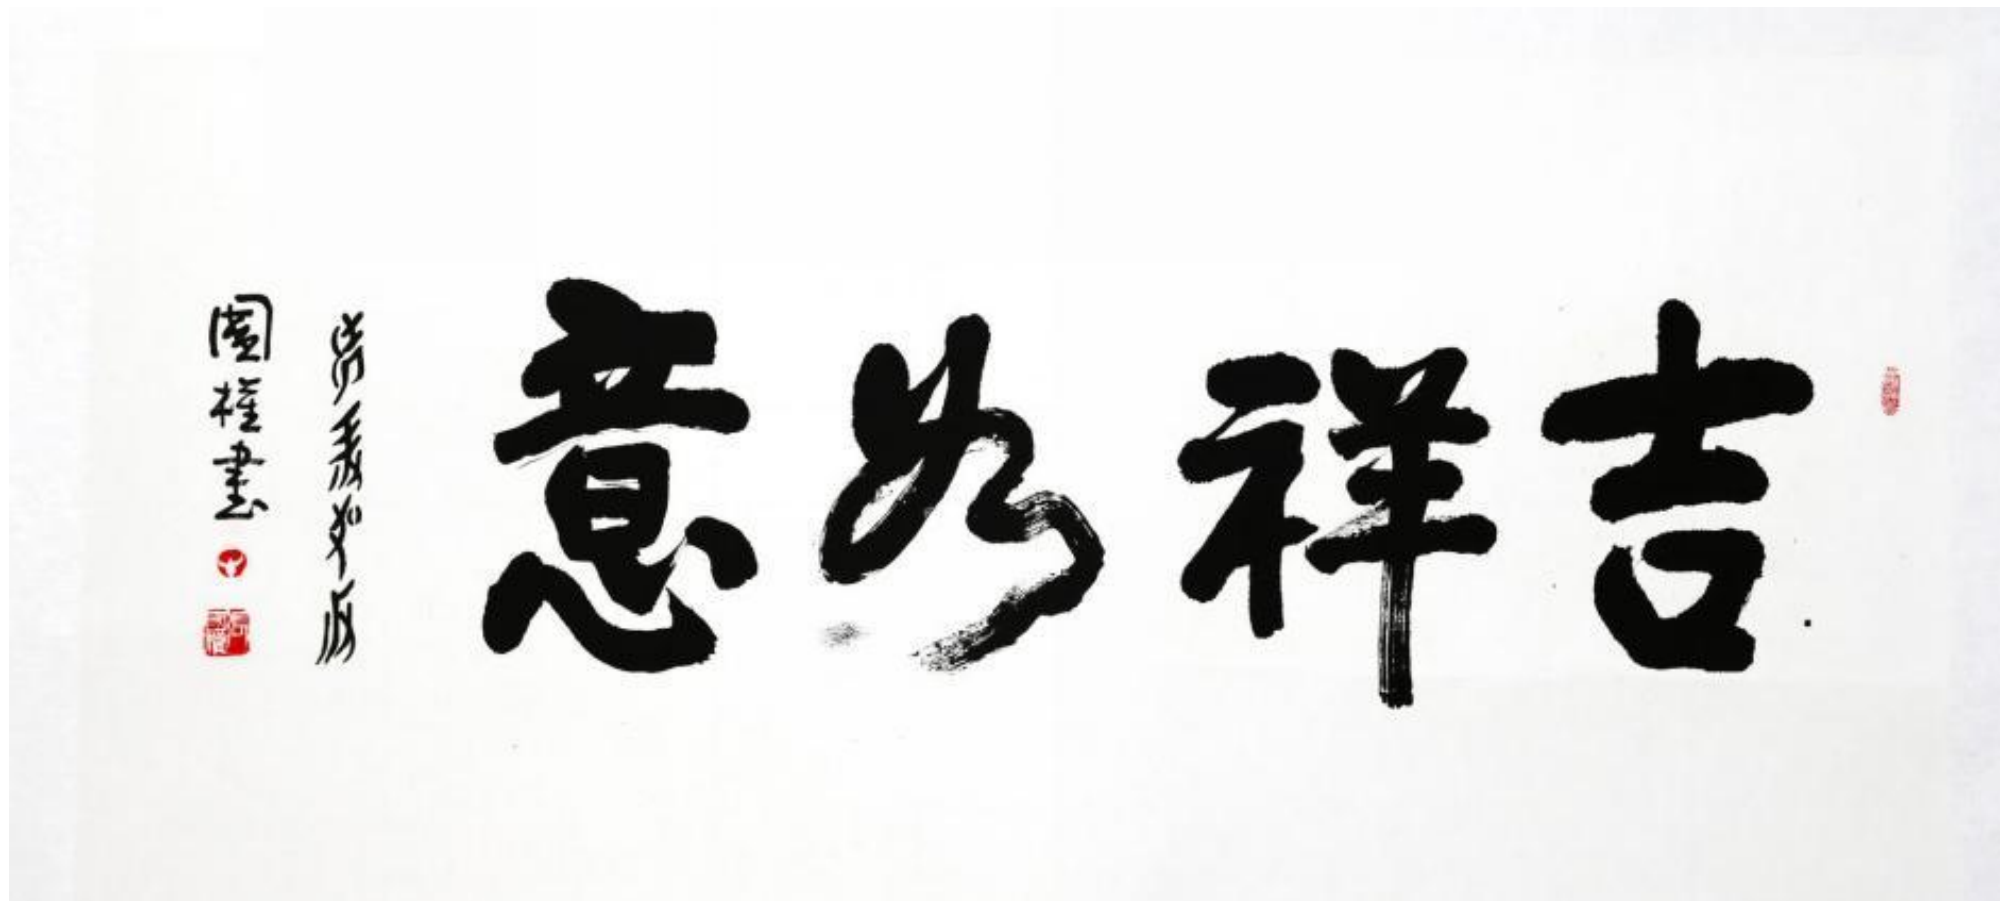 吉祥如意
國權書